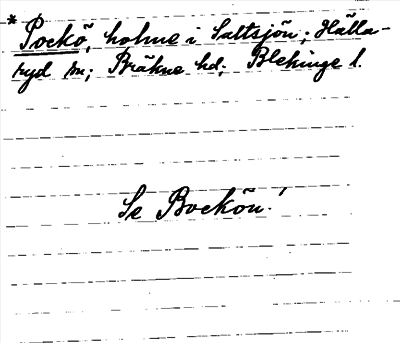 * Pockö, holme i Saltsjön; Hälla-
ryd sn; Bräkne hd; Blekinge l.
Se Bockön!